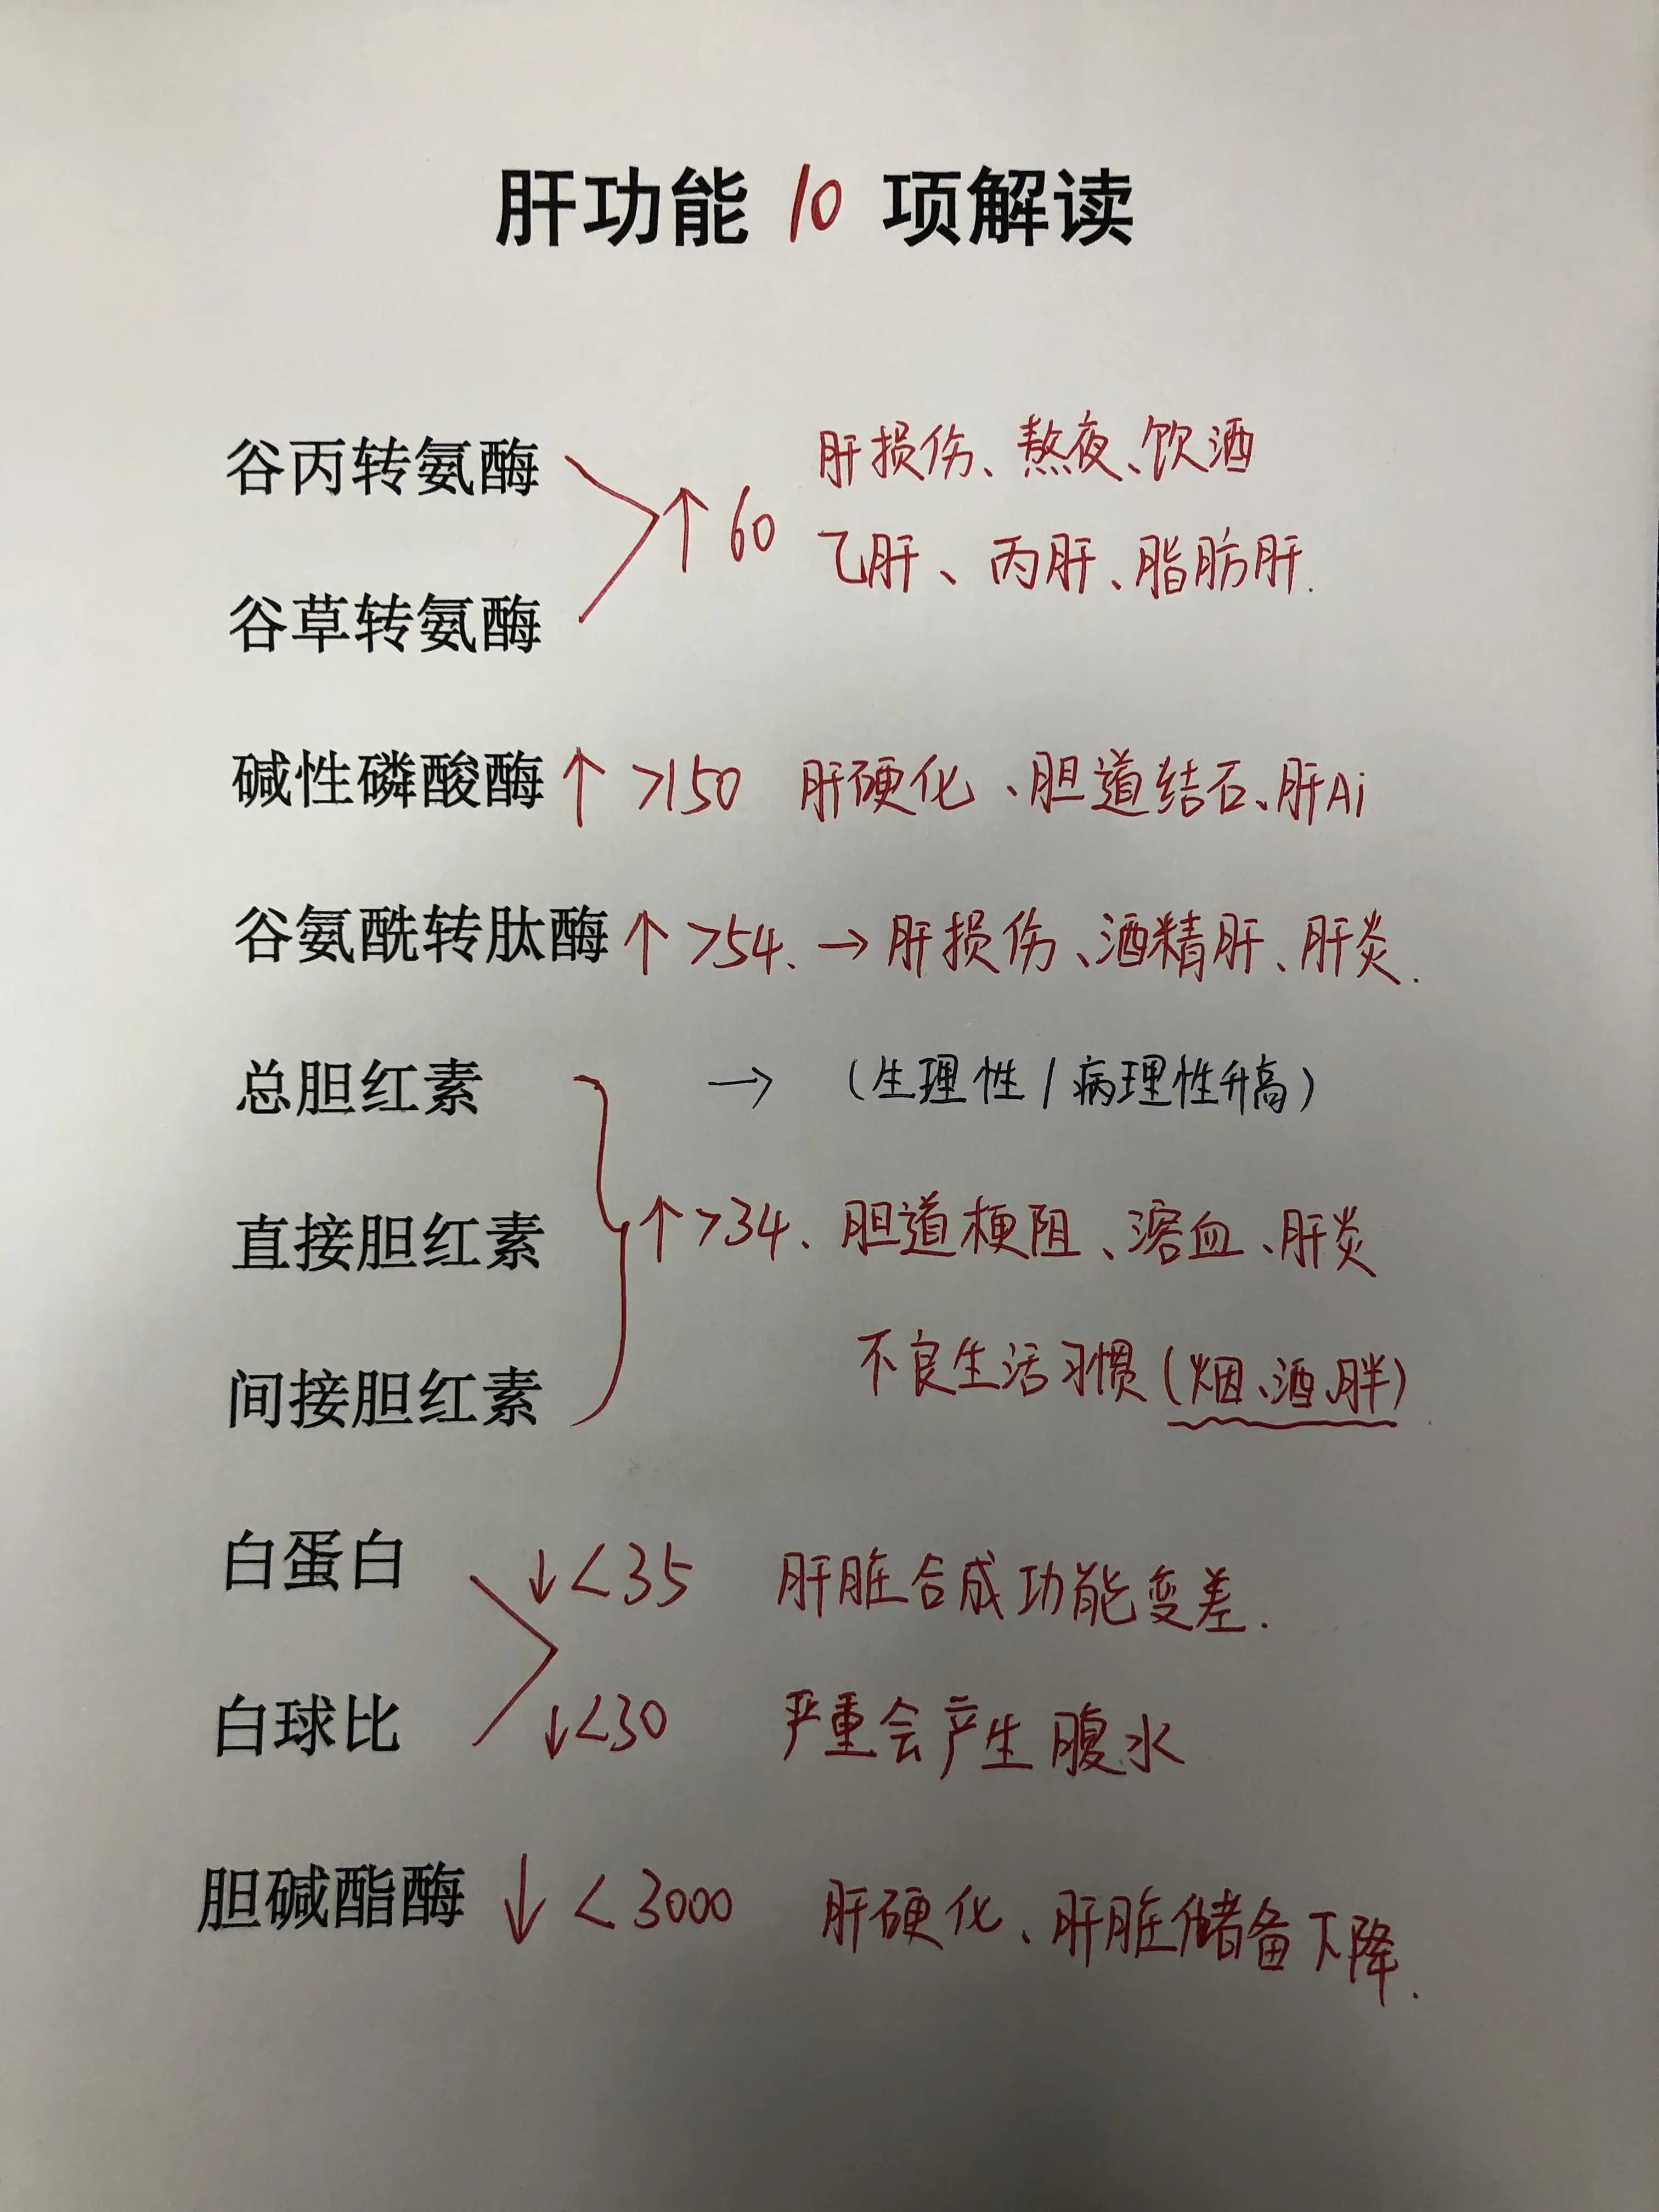 肝功能 10 项解读
谷丙转氨酶
肝损伤、熬夜、饮酒
↑ 60
乙肝、丙肝、脂肪肝.
谷草转氨酶
碱性磷酸酶 ↑ >150 肝硬化、胆道结石、肝Ai
谷氨酰转肽酶 ↑ >54. → 肝损伤、酒精肝、肝炎.
总胆红素 → (生理性/病理性升高)
直接胆红素 ↑ >34、胆道梗阻、溶血、肝炎
间接胆红素 不良生活习惯(烟、酒、胖)
白蛋白 ↓ <35 肝脏合成功能变差.
白球比 ↓ <30 严重会产生腹水
胆碱酯酶 ↓ <3000 肝硬化、肝脏储备下降.